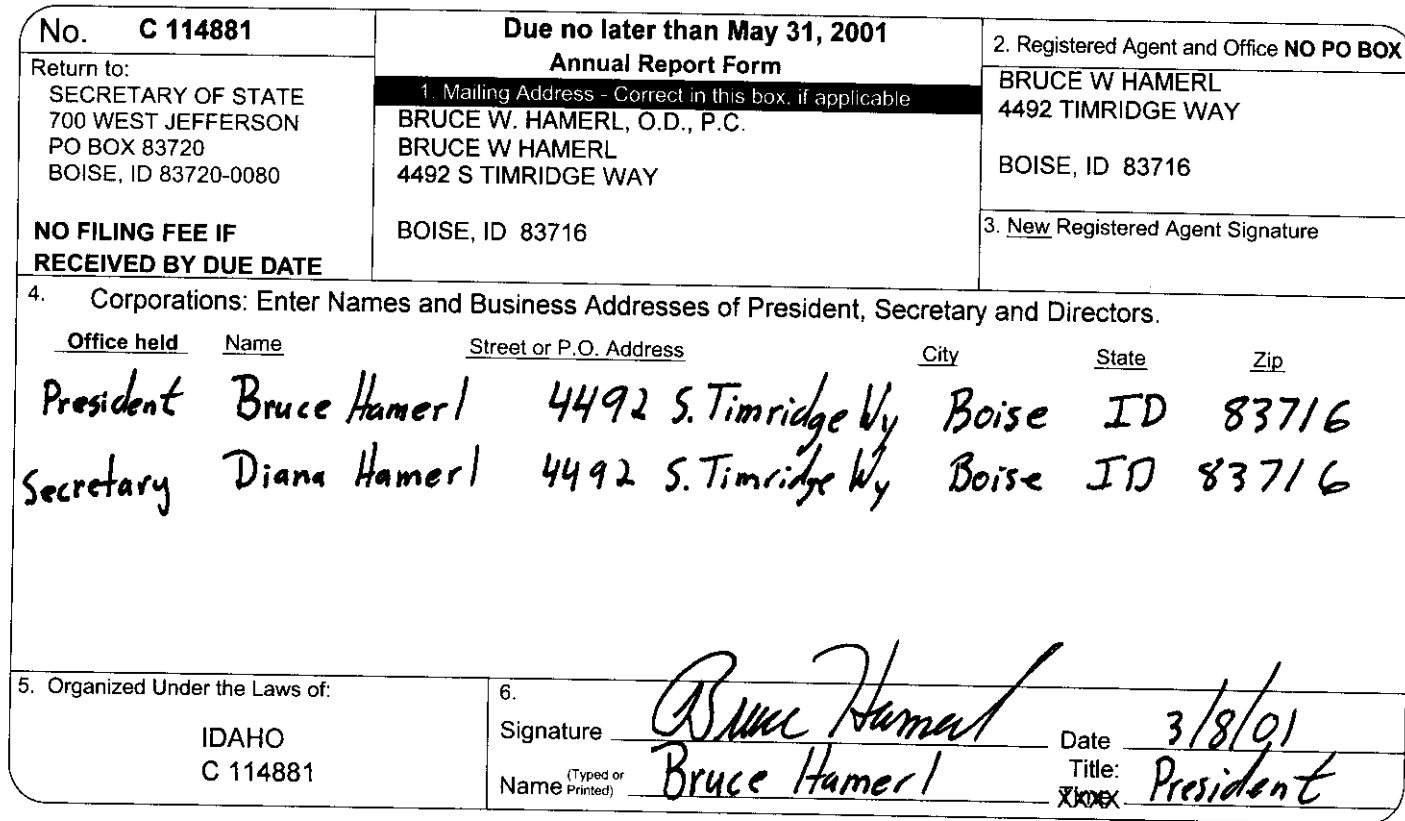 No. C 114881
Return to:
SECRETARY OF STATE
700 WEST JEFFERSON
PO BOX 83720
BOISE, ID 83720-0080
NO FILING FEE IF
RECEIVED BY DUE DATE
Due no later than May 31, 2001
Annual Report Form
1. Mailing Address - Correct in this box, if applicable
BRUCE W. HAMERL, O.D., P.C.
BRUCE W HAMERL
4492 S TIMRIDGE WAY
BOISE, ID 83716
2. Registered Agent and Office NO PO BOX
BRUCE W HAMERL
4492 TIMRIDGE WAY
BOISE, ID 83716
3. New Registered Agent Signature
4. Corporations: Enter Names and Business Addresses of President, Secretary and Directors.
Office held Name Street or P.O. Address City State Zip
President Bruce Hamerl 4492 S. Timridge Wy Boise ID 83716
Secretary Diana Hamerl 4492 S. Timridge Wy Boise ID 83716
5. Organized Under the Laws of:
IDAHO
C 114881
6.
Signature Bruce Hamerl Date 3/8/01
Name (Typed or Printed) Bruce Hamerl Title: President